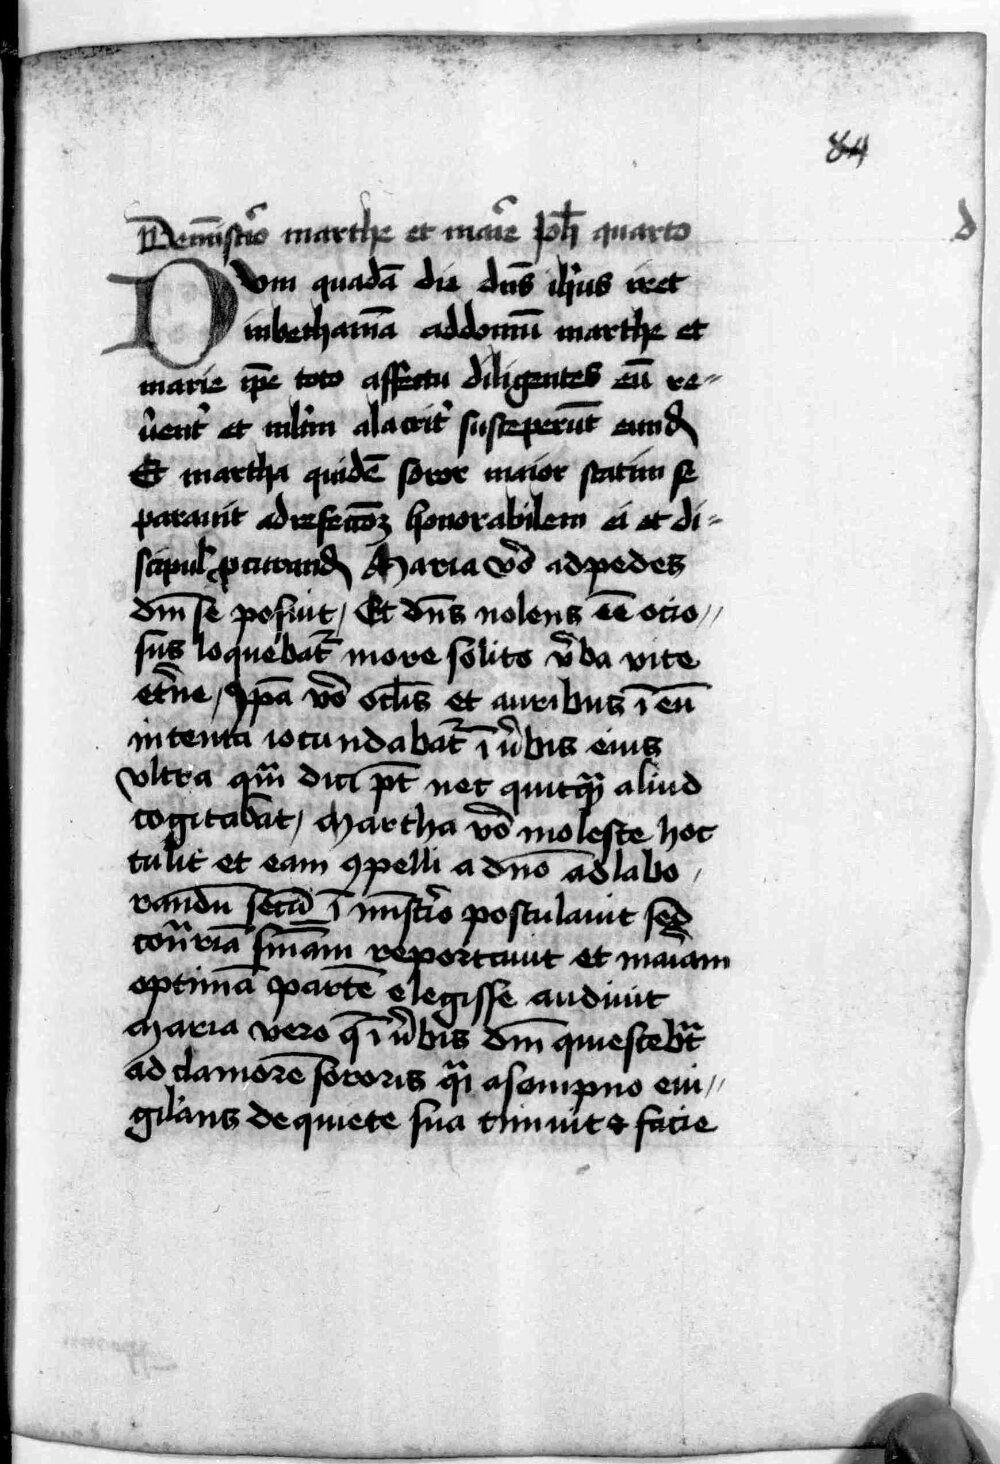 84
d
De mĩstĩo marthe et marie Joh̃ quarto
Dum quadã die dñs ihũs iret
in bethaniã ad domũ marthe et
marie ip̃e toto affectu diligentes eũ re⸗
ũent̾ et alacrit̾ susceperũt eund̃
Et martha quidẽ soror maior statim se
parauit ad refectõꝫ honorabilem ei et di⸗
scipul̾ ꝓcurand̃ Maria ṽo ad pedes
dñi se posuit / Et dñs nolens eẽ ocio⸗
sus loquebat̃ more solito ṽba vite
et̾ne / Ip̃a ṽo oclĩs et auribus ĩ eũ
intenta iocundabat̃ ĩ ṽbis eius
vltra qm̃ dici pt̃ nec quitꝙ̃ aliud
cogitabat / Martha ṽo moleste hoc
tulit et eam ꝯpelli a dño ad labo⸗
randũ secũ ĩ mĩstĩo postulauit sed
cont̃riã sñiam reportauit et mariam
optimã partẽ elegisse audiuit
Maria vero q̃ ĩ ṽbis dñi quiescebat̃
ad clamorẽ sororis q̃i a sompno eui⸗
gilans de quiete sua timuit & facie